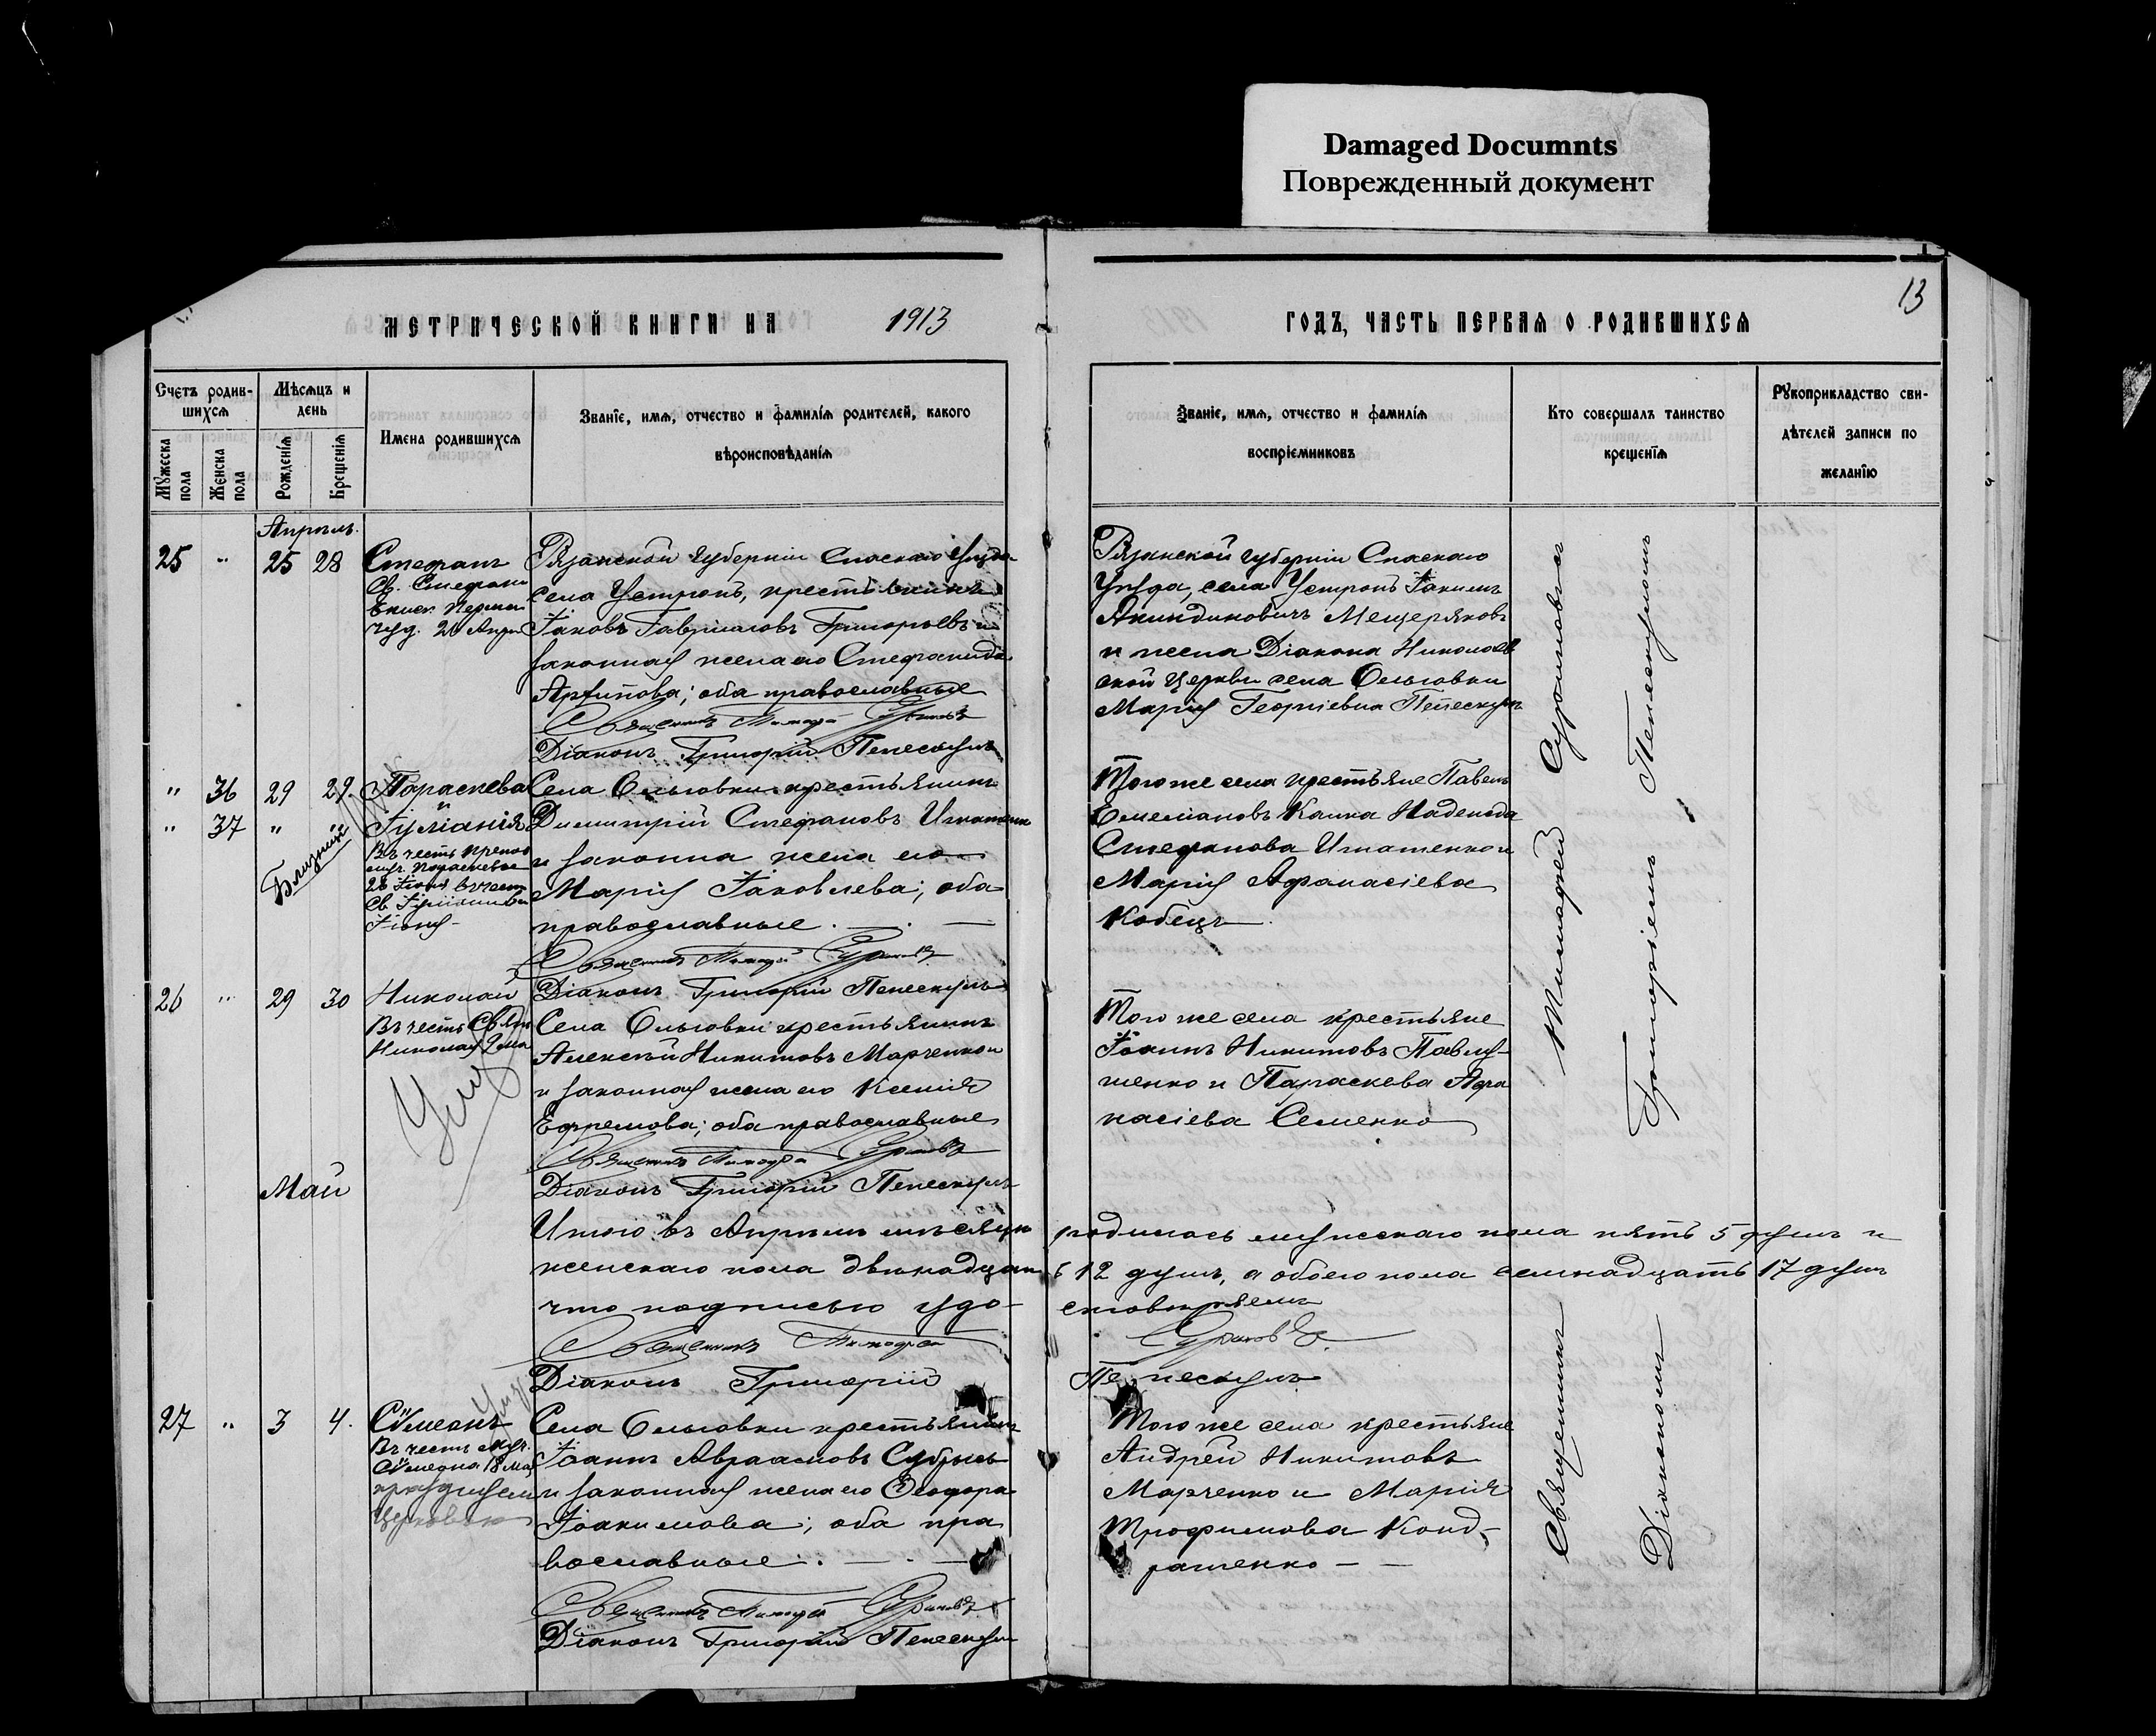 Damaged Documnts
Поврежденный документ
13
МЕТРИЧЕСКОЙ КНИГИ НА 1913 ГОДЪ, ЧАСТЬ ПЕРВАЯ О РОДИВШИХСЯ
Счетъ родив-
шихся
Мѣсяцъ и
день
Имена родившихся
Званіе, имя, отчество и фамилія родителей, какого
вѣроисповѣданія
Званіе, имя, отчество и фамилія
воспріемниковъ
Кто совершалъ таинство
крещенія
Рукоприкладство сви-
дѣтелей записи по
желанію
Мужеска
пола
Женска
пола
Рожденія
Крещенія
Апрѣль.
25 " 25 28
Стефанъ
Св. Стефана
Еписк. Перм.
чуд. 26 Апр.
Рязанской губерніи Спаскаго Уѣзда
села Устронь, крестьянинъ
Іаковъ Гавріиловъ Григорьевъ и
законная жена его Стефанида
; оба православные
Священникъ Тимофей Суриковъ
Діаконъ Григорій Пепескулъ
Рязанской губерніи Спаскаго
Уѣзда, села Устронь Іакимъ
Акиндиновичъ Мещеряковъ
и жена Діакона Николаев
ской Церкви села Ольговки
Марія Георгіевна Пепескулъ
" 36 29 29.
Параскева
и
" 37 " "
Іуліанія
Близнецы
Въ честь препод
муч. Параскевы
28 Іюня въ честь
Св. Іуліаніи
Іюня
Села Ольговки крестьянинъ
Димитрій Стефановъ Игнатенко
и законна жена его
Марія Іаковлева; оба
православные.
Священникъ Тимофей Суриковъ
Діаконъ Григорій Пепескулъ
Того же села крестьяне Павелъ
Емеліановъ Калка Надежда
Стефанова Игнатенко и
Марія Афанасіева
Кобецъ
26 " 29 30
Николай
Въ честь Свят.
Николая 9 мая
Села Ольговки крестьянинъ
Алексѣй Никитовъ Марченко и
и законная жена его Ксенія
Ефремова; оба православные
Священникъ Тимофей Суриковъ
Діаконъ Григорій Пепескулъ
Того же села крестьяне
Іоаннъ Никитовъ Павлу-
шенко и Параскева Афа
насіева Семенко
Май
Итого въ Апрѣлѣ мѣсяцѣ родилось мужескаго пола пять 5 душъ и
женскаго пола двѣнадцать 12 душъ, а обоего пола семнадцать 17 душъ
что подписью удо- стовѣряемъ
Священникъ Тимофей Суриковъ
Діаконъ Григорій Пепескулъ
27 " 3 4.
Сѵмеонъ
Въ честь муч.
Сѵмеона 18 Мая
празднуем.
Церковью
Села Ольговки крестьянинъ
Іоаннъ Авраамовъ
и законная жена его Ѳеодора
Іоакимова; оба пра
вославные.
Священникъ Тимофей Суриковъ
Діаконъ Григорій Пепескулъ
Того же села крестьяне
Андрей Никитовъ
Марченко и Марія
Трофимова Конд-
ратенко
Священникъ Тимофей Суриковъ
Діакономъ Григоріемъ Пепескуломъ